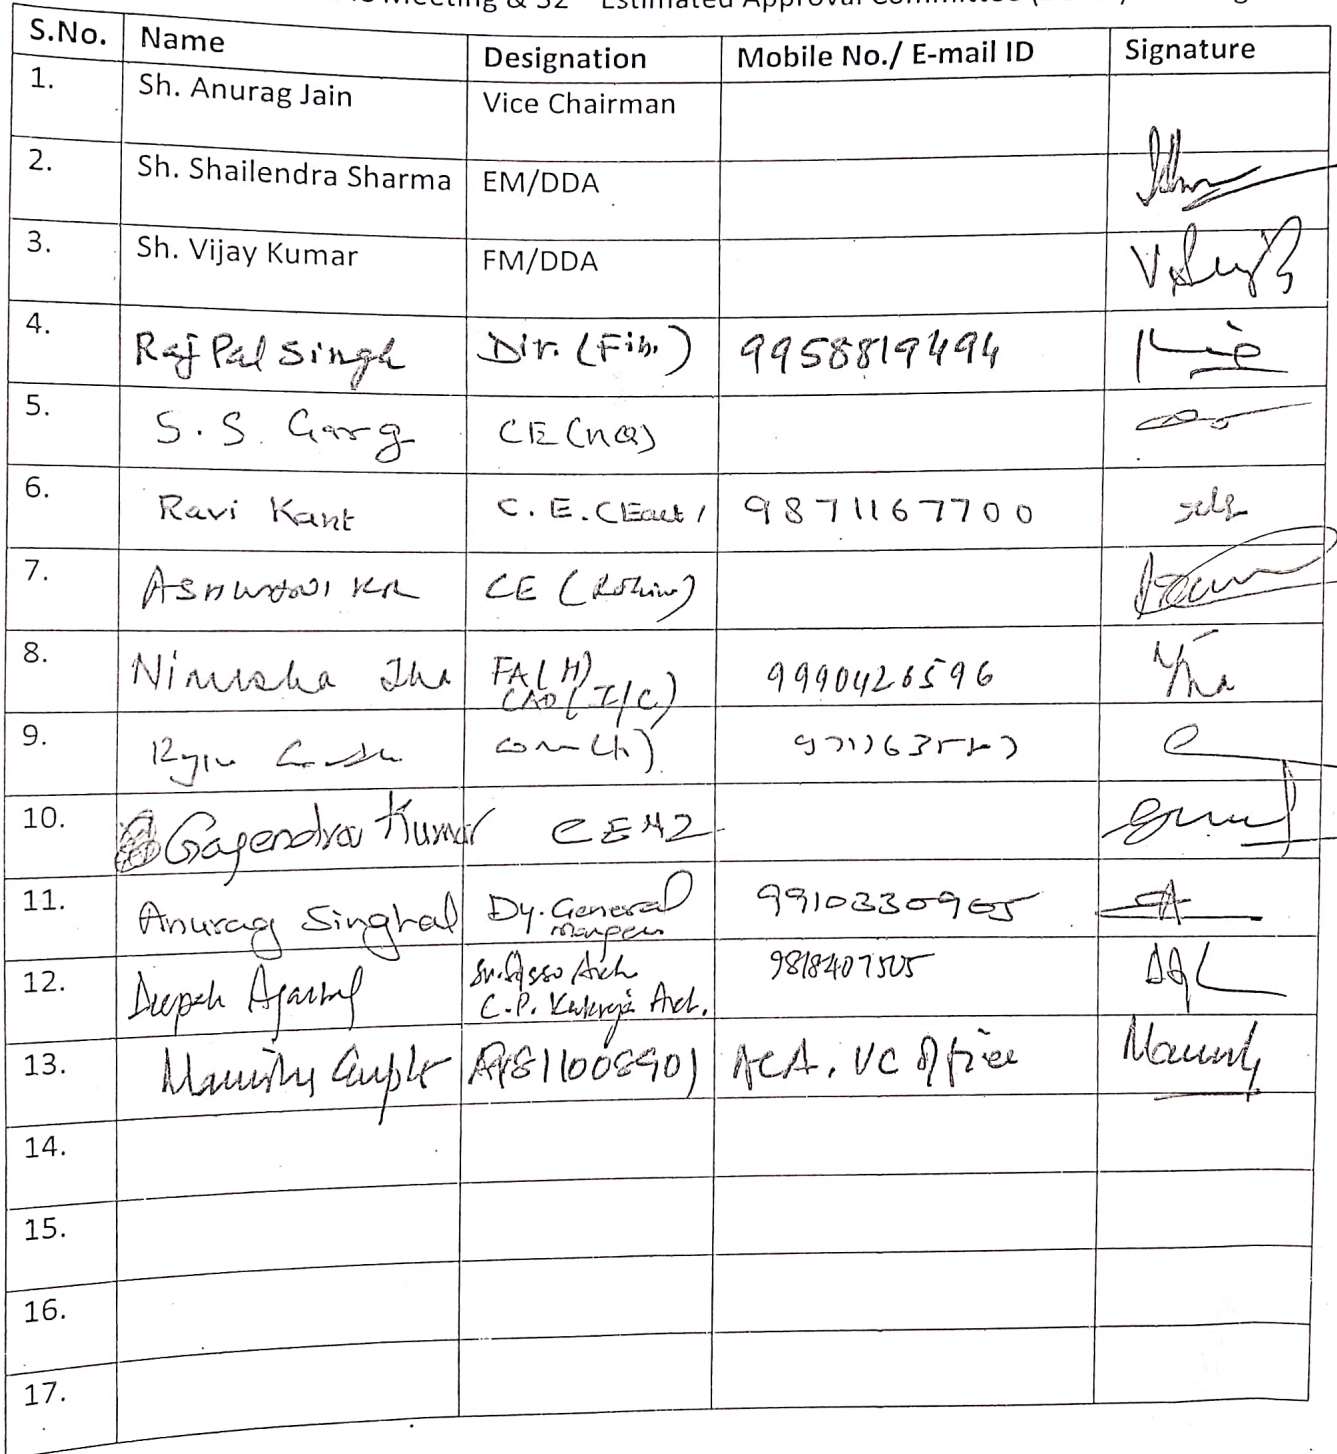 Meeting & 32 Estimated Approval Committee
S.No. Name Designation Mobile No./ E-mail ID Signature
1. Sh. Anurag Jain Vice Chairman
2. Sh. Shailendra Sharma EM/DDA
3. Sh. Vijay Kumar FM/DDA
4. Raj Pal Singh Dir. (Fin.) 9958819494
5. S. S. Garg CE (HQ)
6. Ravi Kant C. E. (East) 9871167700
7. Ashwani Kr CE (Rohini)
8. Nimisha Jha FA(H) 9990426596
CAO (I/C)
9.
10. Gagendra Kumar CEHZ
11. Anurag Singhal Dy. General 9910330905
Manager
12. Deepak Agarwal Sr. Asso Arch 9818407505
C.P. Kukreja Arch.
13. Manish Gupta 9811008901 ACA, VC Office
14.
15.
16.
17.